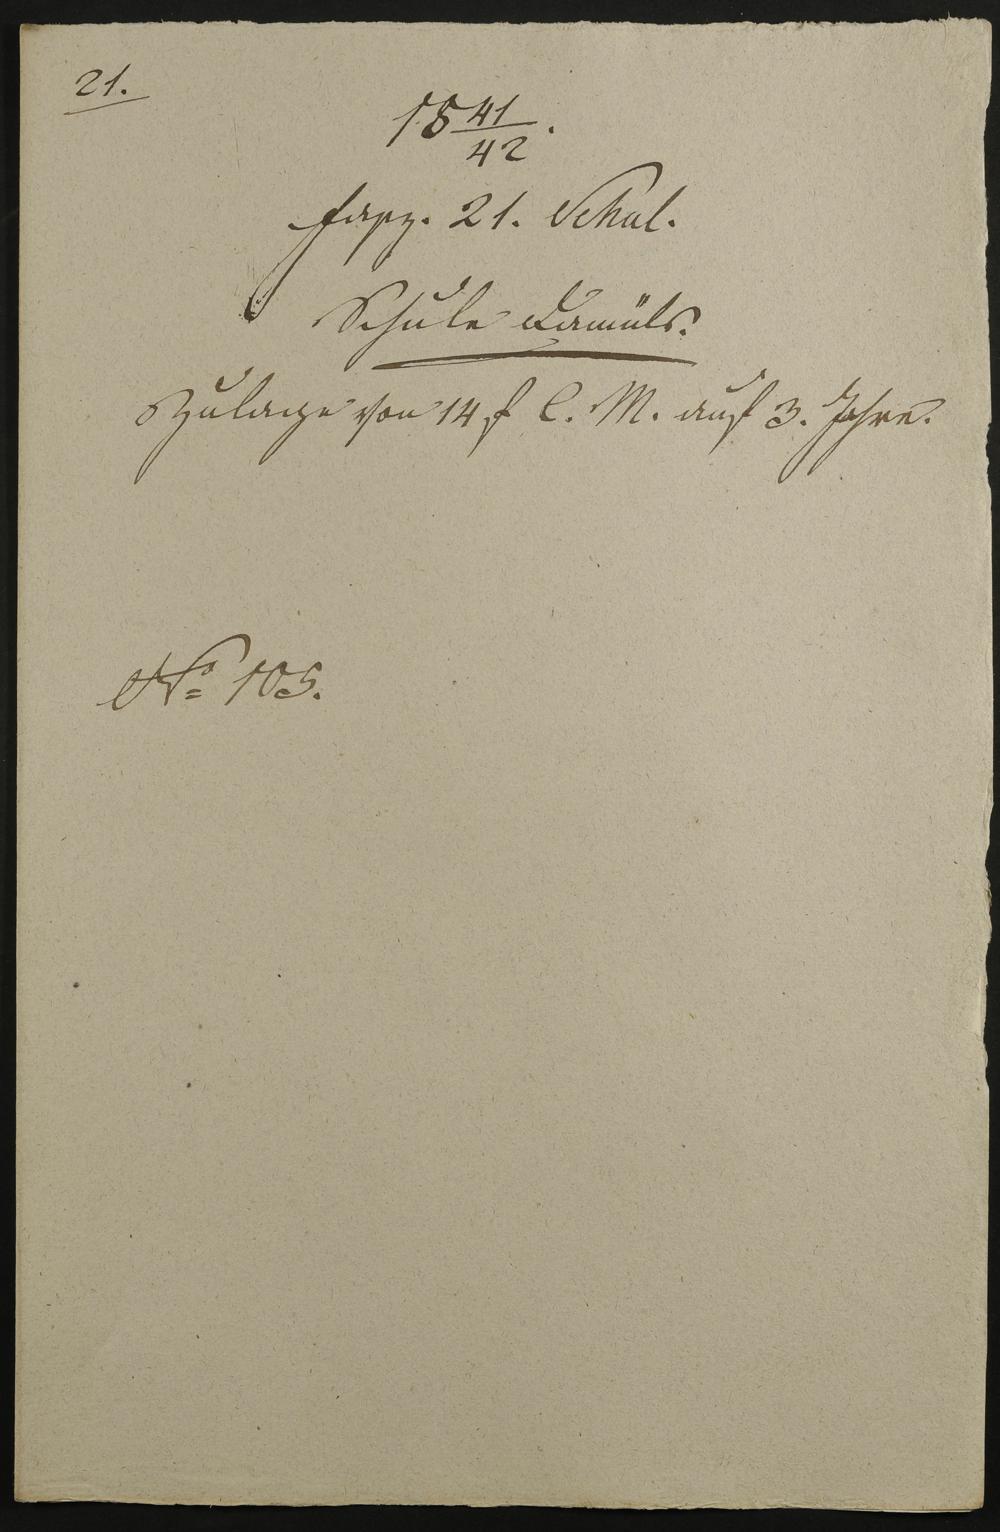 21.
18 41/42.
Fasz. 21. Schul.
Schule Damüls.
Zulage von 14 f C. M. auf 3. Jahre.
No 105.